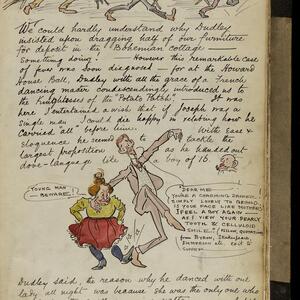 We could hardly understand why Dudley
insisted upon dragging half of our furniture
for deposit in the Bohemian cottage.
Something doing. However this remarkable case
of fuss was soon diagnosed in for at the Howard
House Ball, Dudley with all the grace of a French
dancing master condescendingly introduced us to
the Knightesses of the "Potato Patch". It was
here I entertained a wish that if Joseph was a
single man I could die happy in relating how he
carried "all" before him. With ease &
eloquence he seemed to tackle the
largest proposition as he handed out
dove-language like a boy of 16.
YOUNG MAN
BEWARE!
DEAR ME
YOU'RE A CHARMING DANCER
SIMPLY LOVELY TO BEHOLD
IS YOUR PLACE LIKE
I FEEL A BOY AGAIN
AS I VIEW YOUR PEARLY
TOOTH & CELLULOID
SMILE
from Byron, Shakespeare,
Emmerson etc.
Dudley said, the reason why he danced with one
lady all night was because she was the only one who